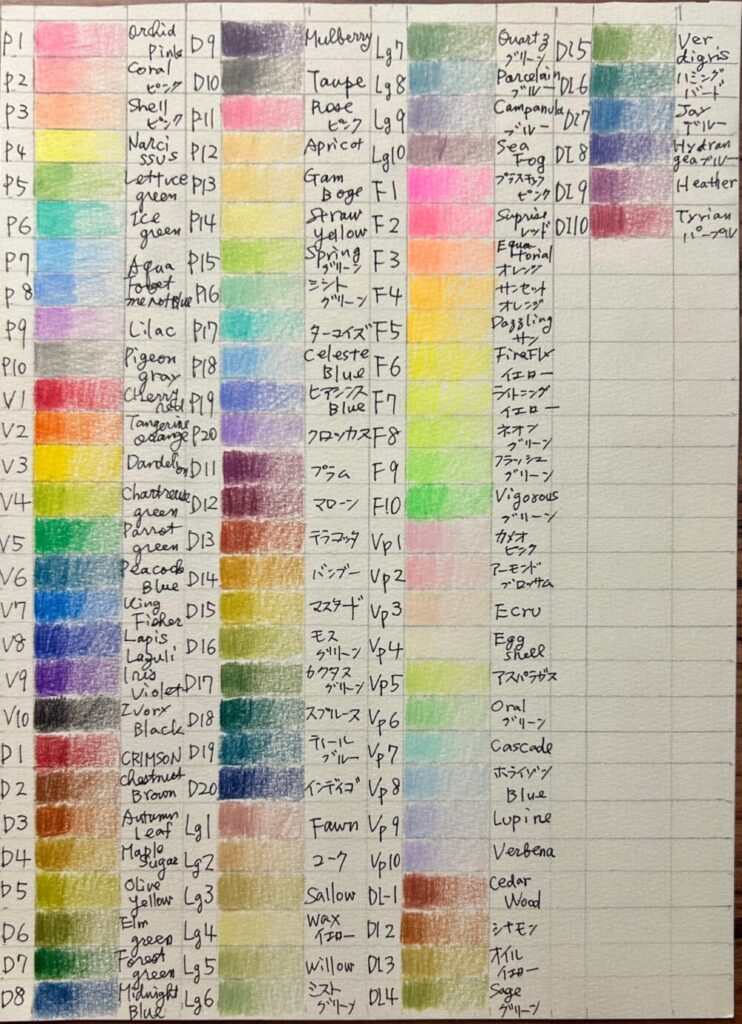 P1 Orchid
Pink
P2 Coral
ピンク
P3 Shell
ピンク
P4 Narci
ssus
P5 Lettuce
green
P6 Ice
green
P7 Aqua
P8 Forget
me not Blue
P9 Lilac
P10 Pigeon
gray
V1 Cherry
red
V2 Tangerine
orange
V3 Dandelion
V4 Chartreuse
green
V5 Parrot
green
V6 Peacock
Blue
V7 King
Fisher
V8 Lapis
Lazuli
V9 Iris
Violet
V10 Ivory
Black
D1 CRIMSON
D2 Chestnut
Brown
D3 Autumn
Leaf
D4 Maple
Sugar
D5 Olive
yellow
D6 Elm
green
D7 Forest
green
D8 Midnight
Blue
D9 Mulberry
D10 Taupe
P11 Rose
ピンク
P12 Apricot
P13 Gam
Boge
P14 Straw
yellow
P15 Spring
グリーン
P16 ミント
グリーン
P17 ターコイズ
P18 Celeste
Blue
P19 ヒアシンス
Blue
P20 クロッカス
D11 プラム
D12 マローン
D13 テラコッタ
D14 バンブー
D15 マスタード
D16 モス
グリーン
D17 カクタス
グリーン
D18 スプルース
D19 ティール
ブルー
D20 インディゴ
Lg1 Fawn
Lg2 コーク
Lg3 Sallow
Lg4 Wax
イエロー
Lg5 Willow
Lg6 ミスト
グリーン
Lg7 Quartz
グリーン
Lg8 Porcelain
ブルー
Lg9 Campanula
ブルー
Lg10 Sea
Fog
F1 プラスチック
ピンク
F2 Suprise
レッド
F3 Equa
torial
オレンジ
F4 サンセット
オレンジ
F5 Dazzling
サン
F6 FireFly
イエロー
F7 ライトニング
イエロー
F8 ネオン
グリーン
F9 フラッシュ
グリーン
F10 Vigorous
グリーン
Vp1 カメオ
ピンク
Vp2 アーモンド
ブロッサム
Vp3 Ecru
Vp4 Egg
shell
Vp5 アスパラガス
Vp6 Oral
グリーン
Vp7 Cascade
Vp8 ホライゾン
Blue
Vp9 Lupine
Vp10 Verbena
DL-1 Cedar
Wood
DL2 シナモン
DL3 オイル
イエロー
DL4 Sage
グリーン
DL5 Ver
digris
DL6 ハミング
バード
DL7 Jay
ブルー
DL8 Hydran
geaブルー
DL9 Heather
DL10 Tyrian
パープル